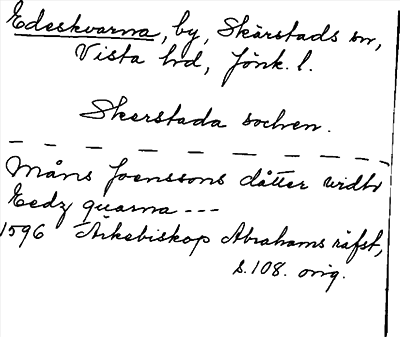 Edeskvarna, by, Skärstads sn,
Vista hd, Jönk. l.
Skerstada sochen.
Måns Joenssons dåtter widh
Eedz quarna ---
1596 Ärkebiskop Abrahams räfst,
s. 108. orig.